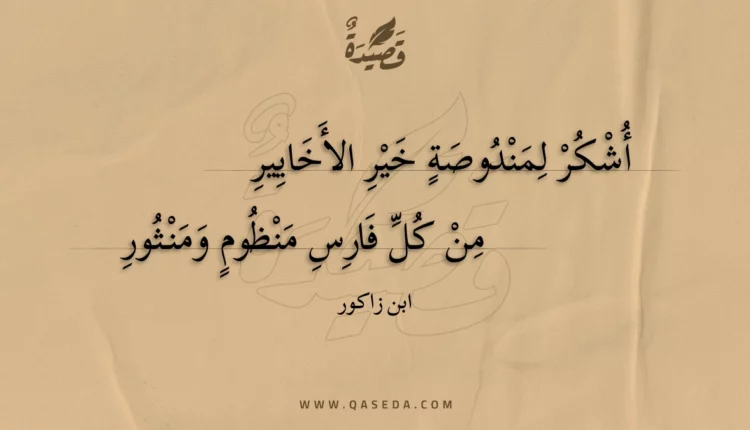 قَصِيْدَةٌ
أُشْكُرْ لِمَنْدُوصَةٍ خَيْرِ الأَخَايِيرِ
مِنْ كُلِّ فَارِسِ مَنْظُومٍ وَمَنْثُورِ
ابن زاكور
WWW.QASEDA.COM